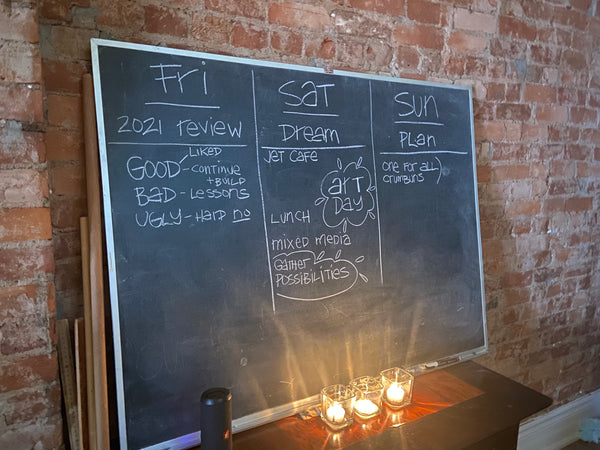 Fri
2021 review
LIKED
GOOD - continue
+ BUILD
BAD - Lessons
UGLY - Hard no
Sat
Dream
Jet Cafe
art
Day
LUNCH
mixed media
Gather
POSSIBILITIES
Sun
Plan
one for all
crumbuns